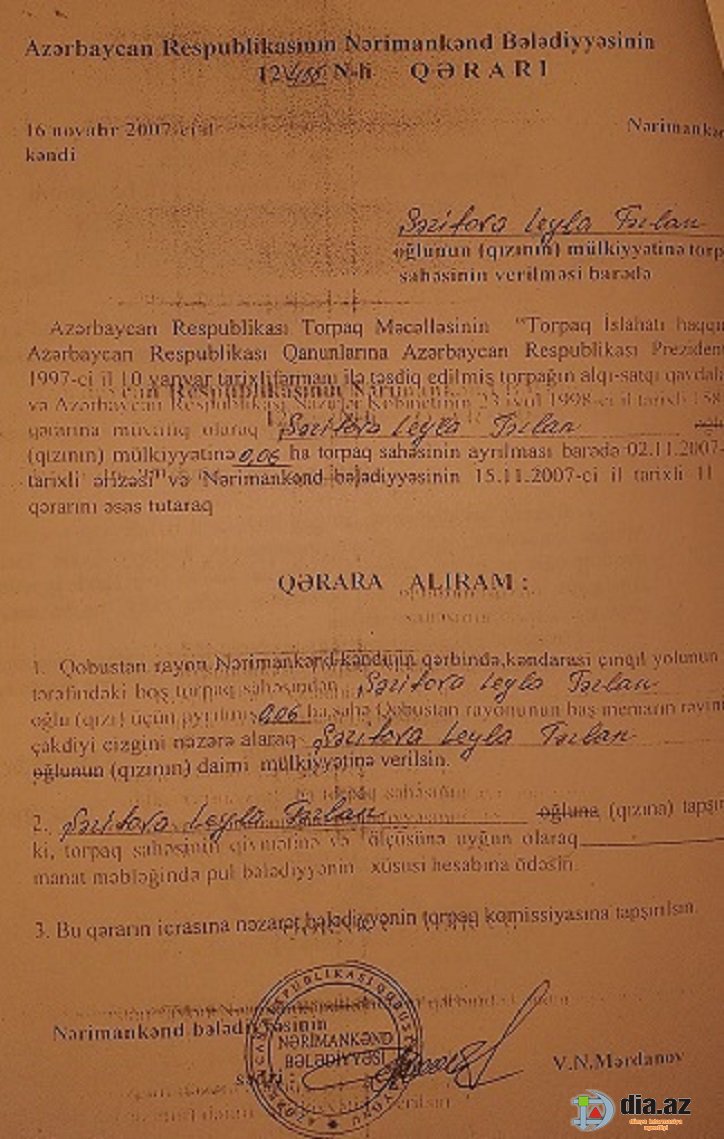 Azərbaycan Respublikasının Nərimankənd Bələdiyyəsinin
N-li QƏRARI
16 noyabr 2007-ci il Nərimankən
kəndi
Şərifova Leyla Tərlan
oğlunun (qızının) mülkiyyətinə torp
sahəsinin verilməsi barədə
Azərbaycan Respublikası Torpaq Məcəlləsinin "Torpaq İslahatı haqqın
Azərbaycan Respublikası Qanunlarına Azərbaycan Respublikası Prezident
1997-ci il 10 yanvar tarixli fərmanı ilə təsdiq edilmiş torpağın alqı-satqı qaydala
və Azərbaycan Respublikası Nazirlər Kabinetinin 23 iyul 1998-ci il tarixli 158
qərarına müvafiq olaraq Şərifova Leyla Tərlan
(qızının) mülkiyyətinə 0,06 ha torpaq sahəsinin ayrılması barədə 02.11.2007-
tarixli ərizəsi və Nərimankənd bələdiyyəsinin 15.11.2007-ci il tarixli 11
qərarını əsas tutaraq
QƏRARA ALIRAM :
1. Qobustan rayon Nərimankənd kəndinin qərbində, kəndarası çınqıl yolunun
tərəfindəki boş torpaq sahəsindən Şərifova Leyla Tərlan
oğlu (qızı) üçün ayrılmış 0,06 ha sahə Qobustan rayonunun baş memarın rəyini
çəkdiyi cizgini nəzərə alaraq Şərifova Leyla Tərlan
oğlunun (qızının) daimi mülkiyyətinə verilsin.
2. Şərifova Leyla Tərlan oğluna (qızına) tapşır
ki, torpaq sahəsinin qiymətinə və ölçüsünə uyğun olaraq
manat məbləğində pul bələdiyyənin xüsusi hesabına ödəsin.
3. Bu qərarın icrasına nəzarət bələdiyyənin torpaq komissiyasına tapşırılsın.
Nərimankənd bələdiyyəsinin
sədri V.N.Mərdanov
NƏRİMANKƏND
BƏLƏDİYYƏSİ
dia.az
dünya informasiya
agentliyi